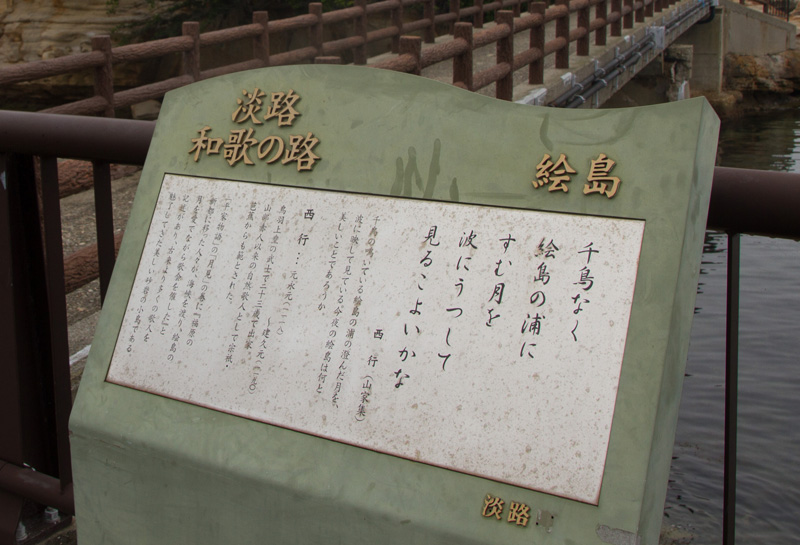 淡路
和歌の路
絵島
千鳥なく
絵島の浦に
すむ月を
波にうつして
見るこよいかな
西行(山家集)
千鳥の鳴いている絵島の浦の澄んだ月を、
波に映して見ている今夜の絵島は何と
美しいことであろうか。
西行…元永元(一一一八)
～建久元(一一九〇)
鳥羽上皇の武士で二十三歳で出家。
山部赤人以来の自然歌人として宗祇・
芭蕉からも範とされた。
「平家物語」の「月見」の巻に『福原の
新都に移った人々が、海峡を渡り、絵島の
月を愛でながら歌会を催した』と
記載があり、古来より多くの歌人を
魅了してきた美しい砂岩の小島である。
淡路